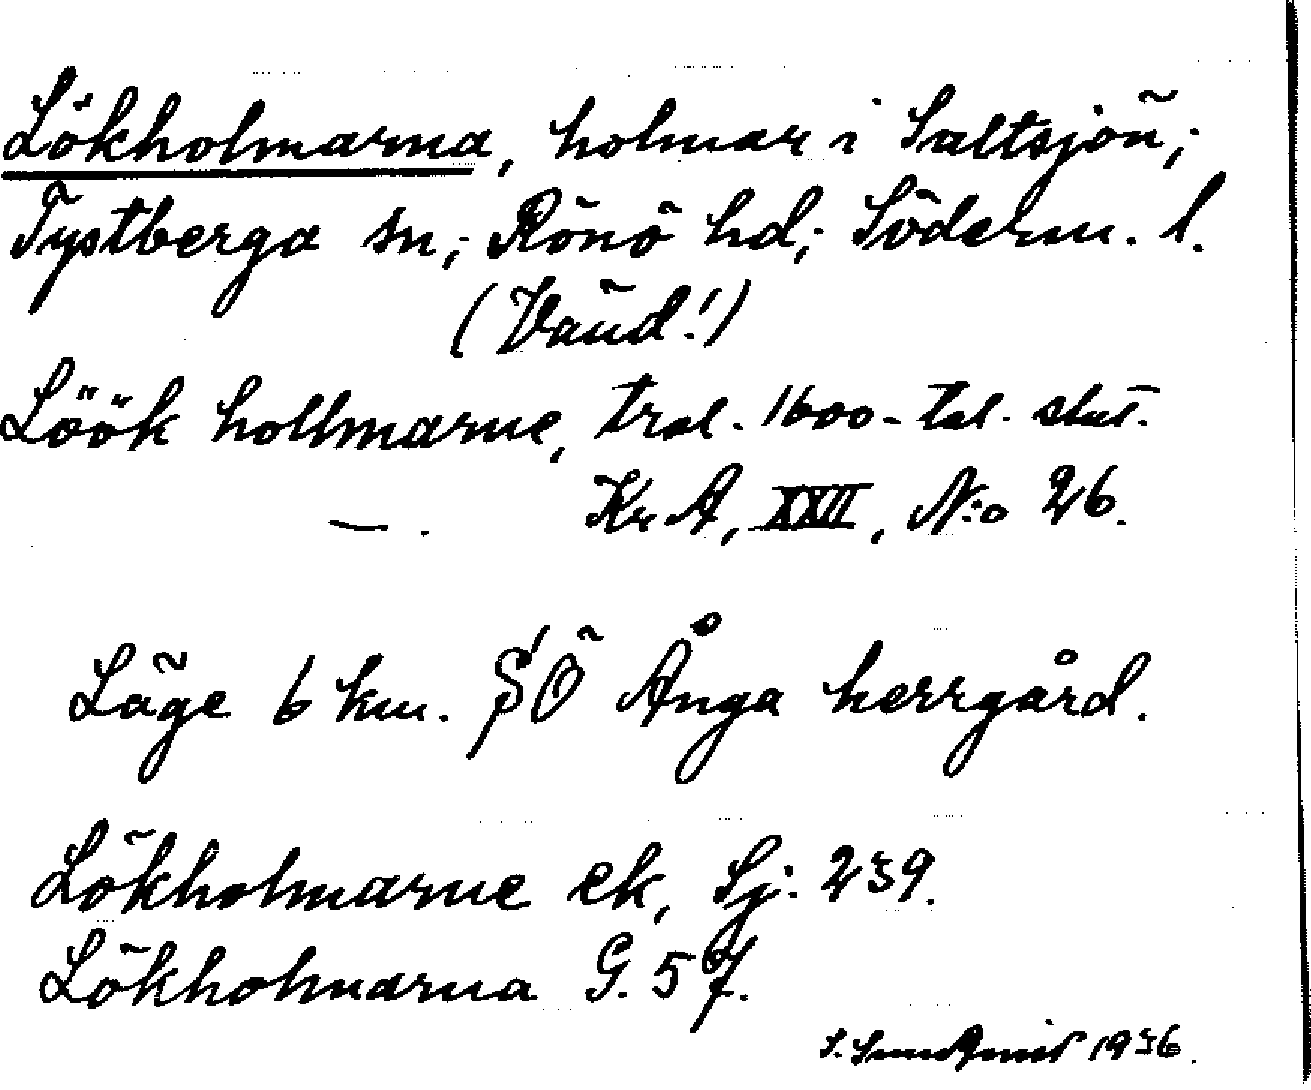 Lökholmarna, holmar i Saltsjön;
Tystberga sn; Rönö hd; Söderm. l.
(Vänd!)
Löök hollmarne, tral. 1600-tal. slut.
— . KrA, XXII, N:o 26.
Läge 6 km. SÖ Ånga herrgård.
Lökholmarne ek, Sj. 239.
Lökholmarna G. 57.
S. Sundqvist 1936.